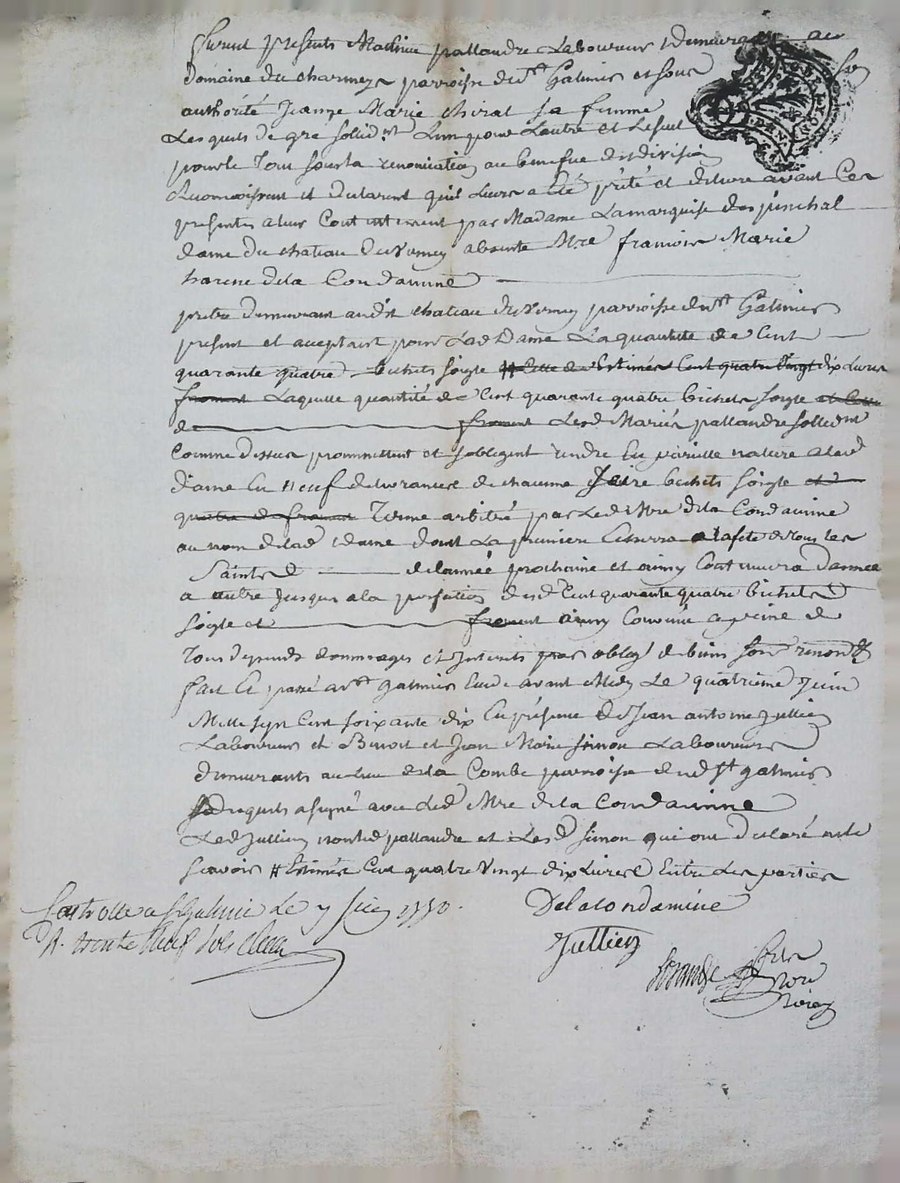 Furent presents Mathieu pallandre Laboureur demeurant au
Domaine du charmey parroisse de St Galmier et sous
authorité Jeanne Marie chirat sa femme
Lesquels de gre solidnt Lun pour Lautre et Leseul
pour le Tout sous la renonciation au benefice de division
Reconnoissent et declarent quil Leurs a eté prêté et delivré avant Ces
presentes a leur Contentement par Madame Lamarquise
dame du chateau absente Mre francois Marie
harene dela Condamine
pretre demeurant audit chateau parroisse de St Galmier
present et acceptant pour Lad Dame La quantité de Cent
quarante quatre bichets soigle Estimés Cent quatre Vingt dix Livres
froment Laquelle quantité de Cent quarante quatre bichets soigle
de froment Lesd Mariés pallandre sollidnt
Comme dessus promettent et soblegent rendre En pareille nature a lad
dame En Neuf delivrances de chacune seize bichets soigle et
quatre de froment Terme arbitré par Led Mre dela Condamine
au nom de lad dame dont La premiere Essera a la fete de Tous les
Saints de lannée prochaine et ainsy Continuera dannee
a autre Jusques a la perfection desd Cent quarante quatre bichets
soigle et froment ainsy Convenu a peine de
Tous depends dommages et Interets par oblig de biens
fait et passé a St galmier Etude avant Midy Le quatrieme Juin
Mille sept Cent soixante dix En présence de Jean antoine Jullien
Laboureur et Benoit et Jean Marie simon Laboureurs
demeurants au lieu de la Combe parroisse dud St galmier
desquels a signé avec Led Mre de la Condamine
Led Jullien non Led pallandre et Les d simon qui ont declaré ne le
scavoir # Estimés Cent quatre Vingt dix Livres Entre les parties
Controllé a St Galmier Le 7 Juin 1770.
R. trente
Delacondamine
Jullien